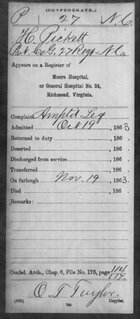 (CONFEDERATE.)
P 27 N.C.
H. Pickett
Pvt. Co. G. 27 Regt. N.C.
Appears on a Register of
Moore Hospital,
or General Hospital No. 24,
Richmond, Virginia.
Complaint Ampt'd Leg
Admitted Oct 19, 1863
Returned to duty , 186
Deserted , 186
Discharged from service , 186
Transferred , 186
On furlough Nov. 19, 1863
Died , 186
Remarks:
Confed. Arch., Chap. 6, File No. 175, page
O. T. Taylor